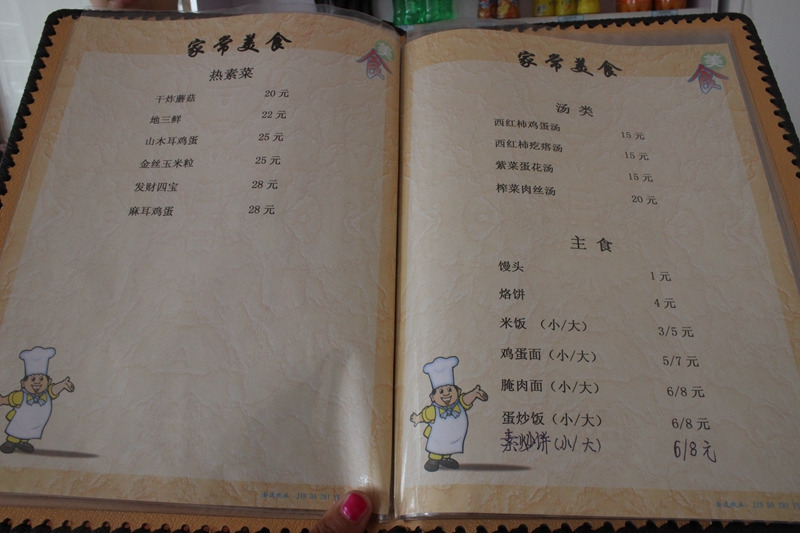 家常美食
热素菜
干炸蘑菇 20 元
地三鲜 22 元
山木耳鸡蛋 25 元
金丝玉米粒 25 元
发财四宝 28 元
麻耳鸡蛋 28 元
家常美食
美食
汤 类
西红柿鸡蛋汤 15 元
西红柿疙瘩汤 15 元
紫菜蛋花汤 15 元
榨菜肉丝汤 20 元
主 食
馒头 1 元
烙饼 4 元
米饭 (小/大) 3/5 元
鸡蛋面 (小/大) 5/7 元
腌肉面 (小/大) 6/8 元
蛋炒饭 (小/大) 6/8 元
素炒饼(小/大) 6/8元